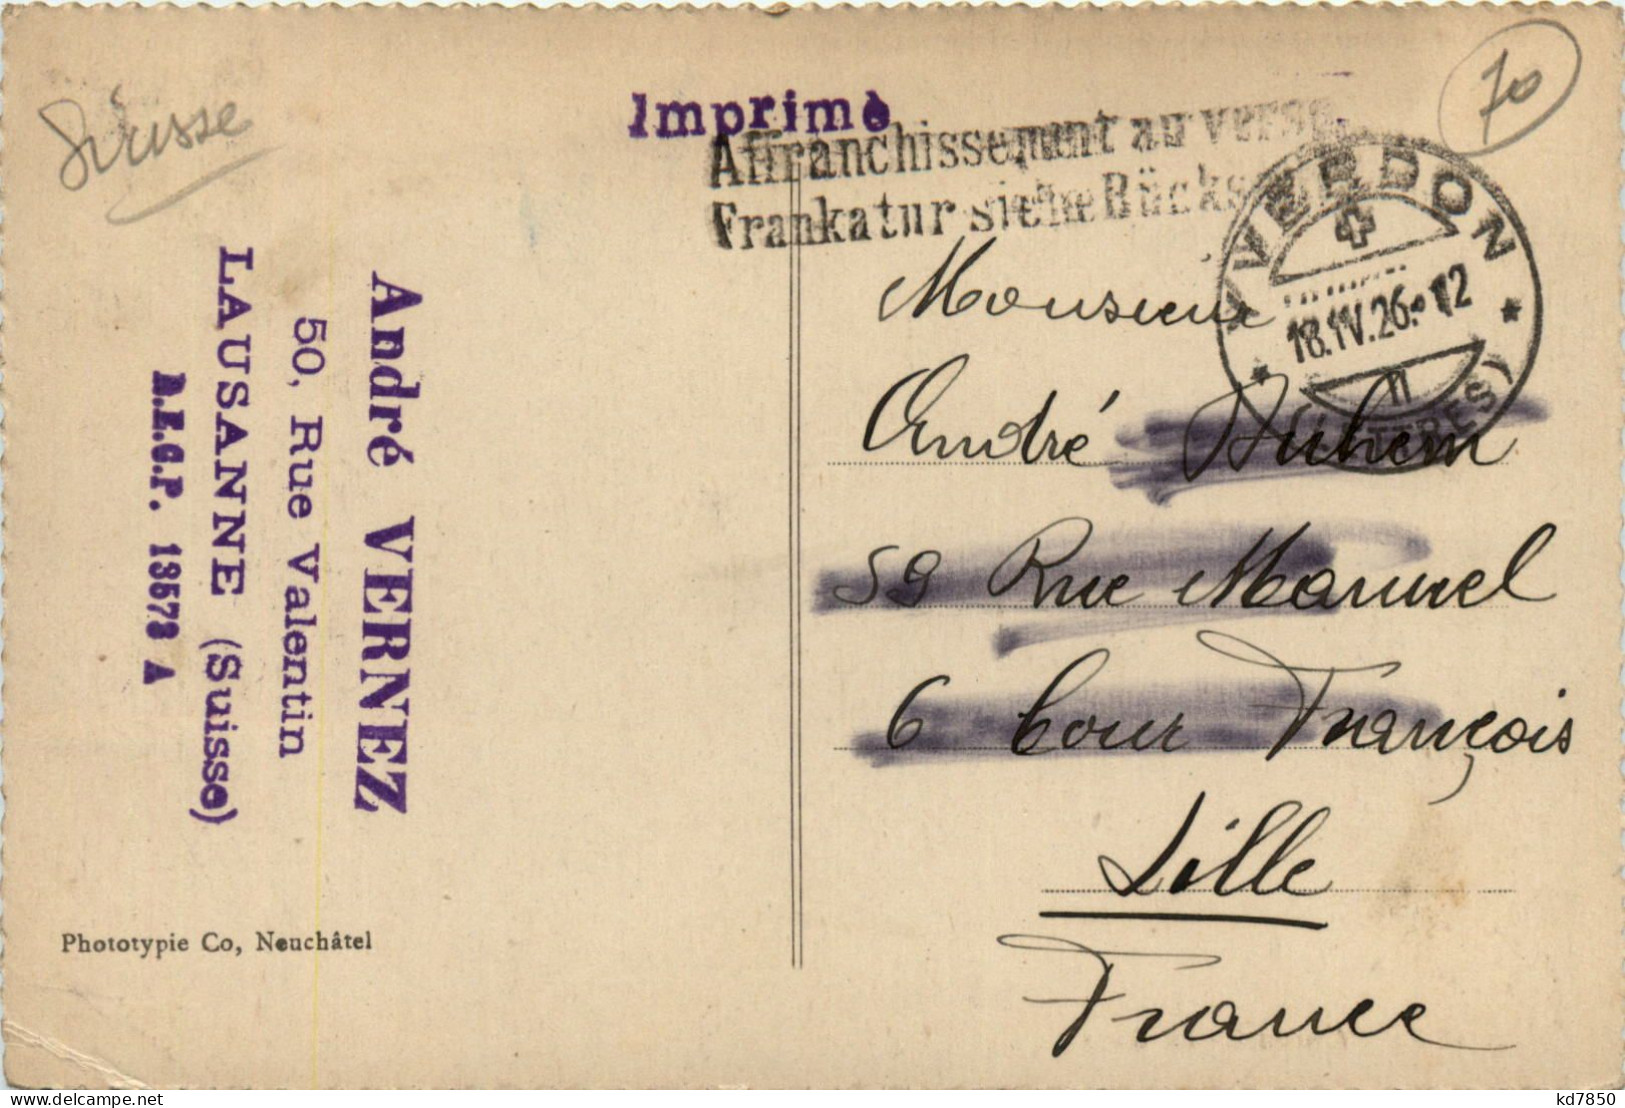 Suisse
70
Imprimé
Affranchissement au verso.
Frankatur siehe Rücks
YVERDON
18.IV.26.-12
II
(LETTRES)
André VERNEZ
50, Rue Valentin
LAUSANNE (Suisse)
A.E.C.P. 13573 A
Monsieur
André Duhem
59 Rue Manuel
6 Cour François
Lille
France
Phototypie Co, Neuchâtel
kd7850